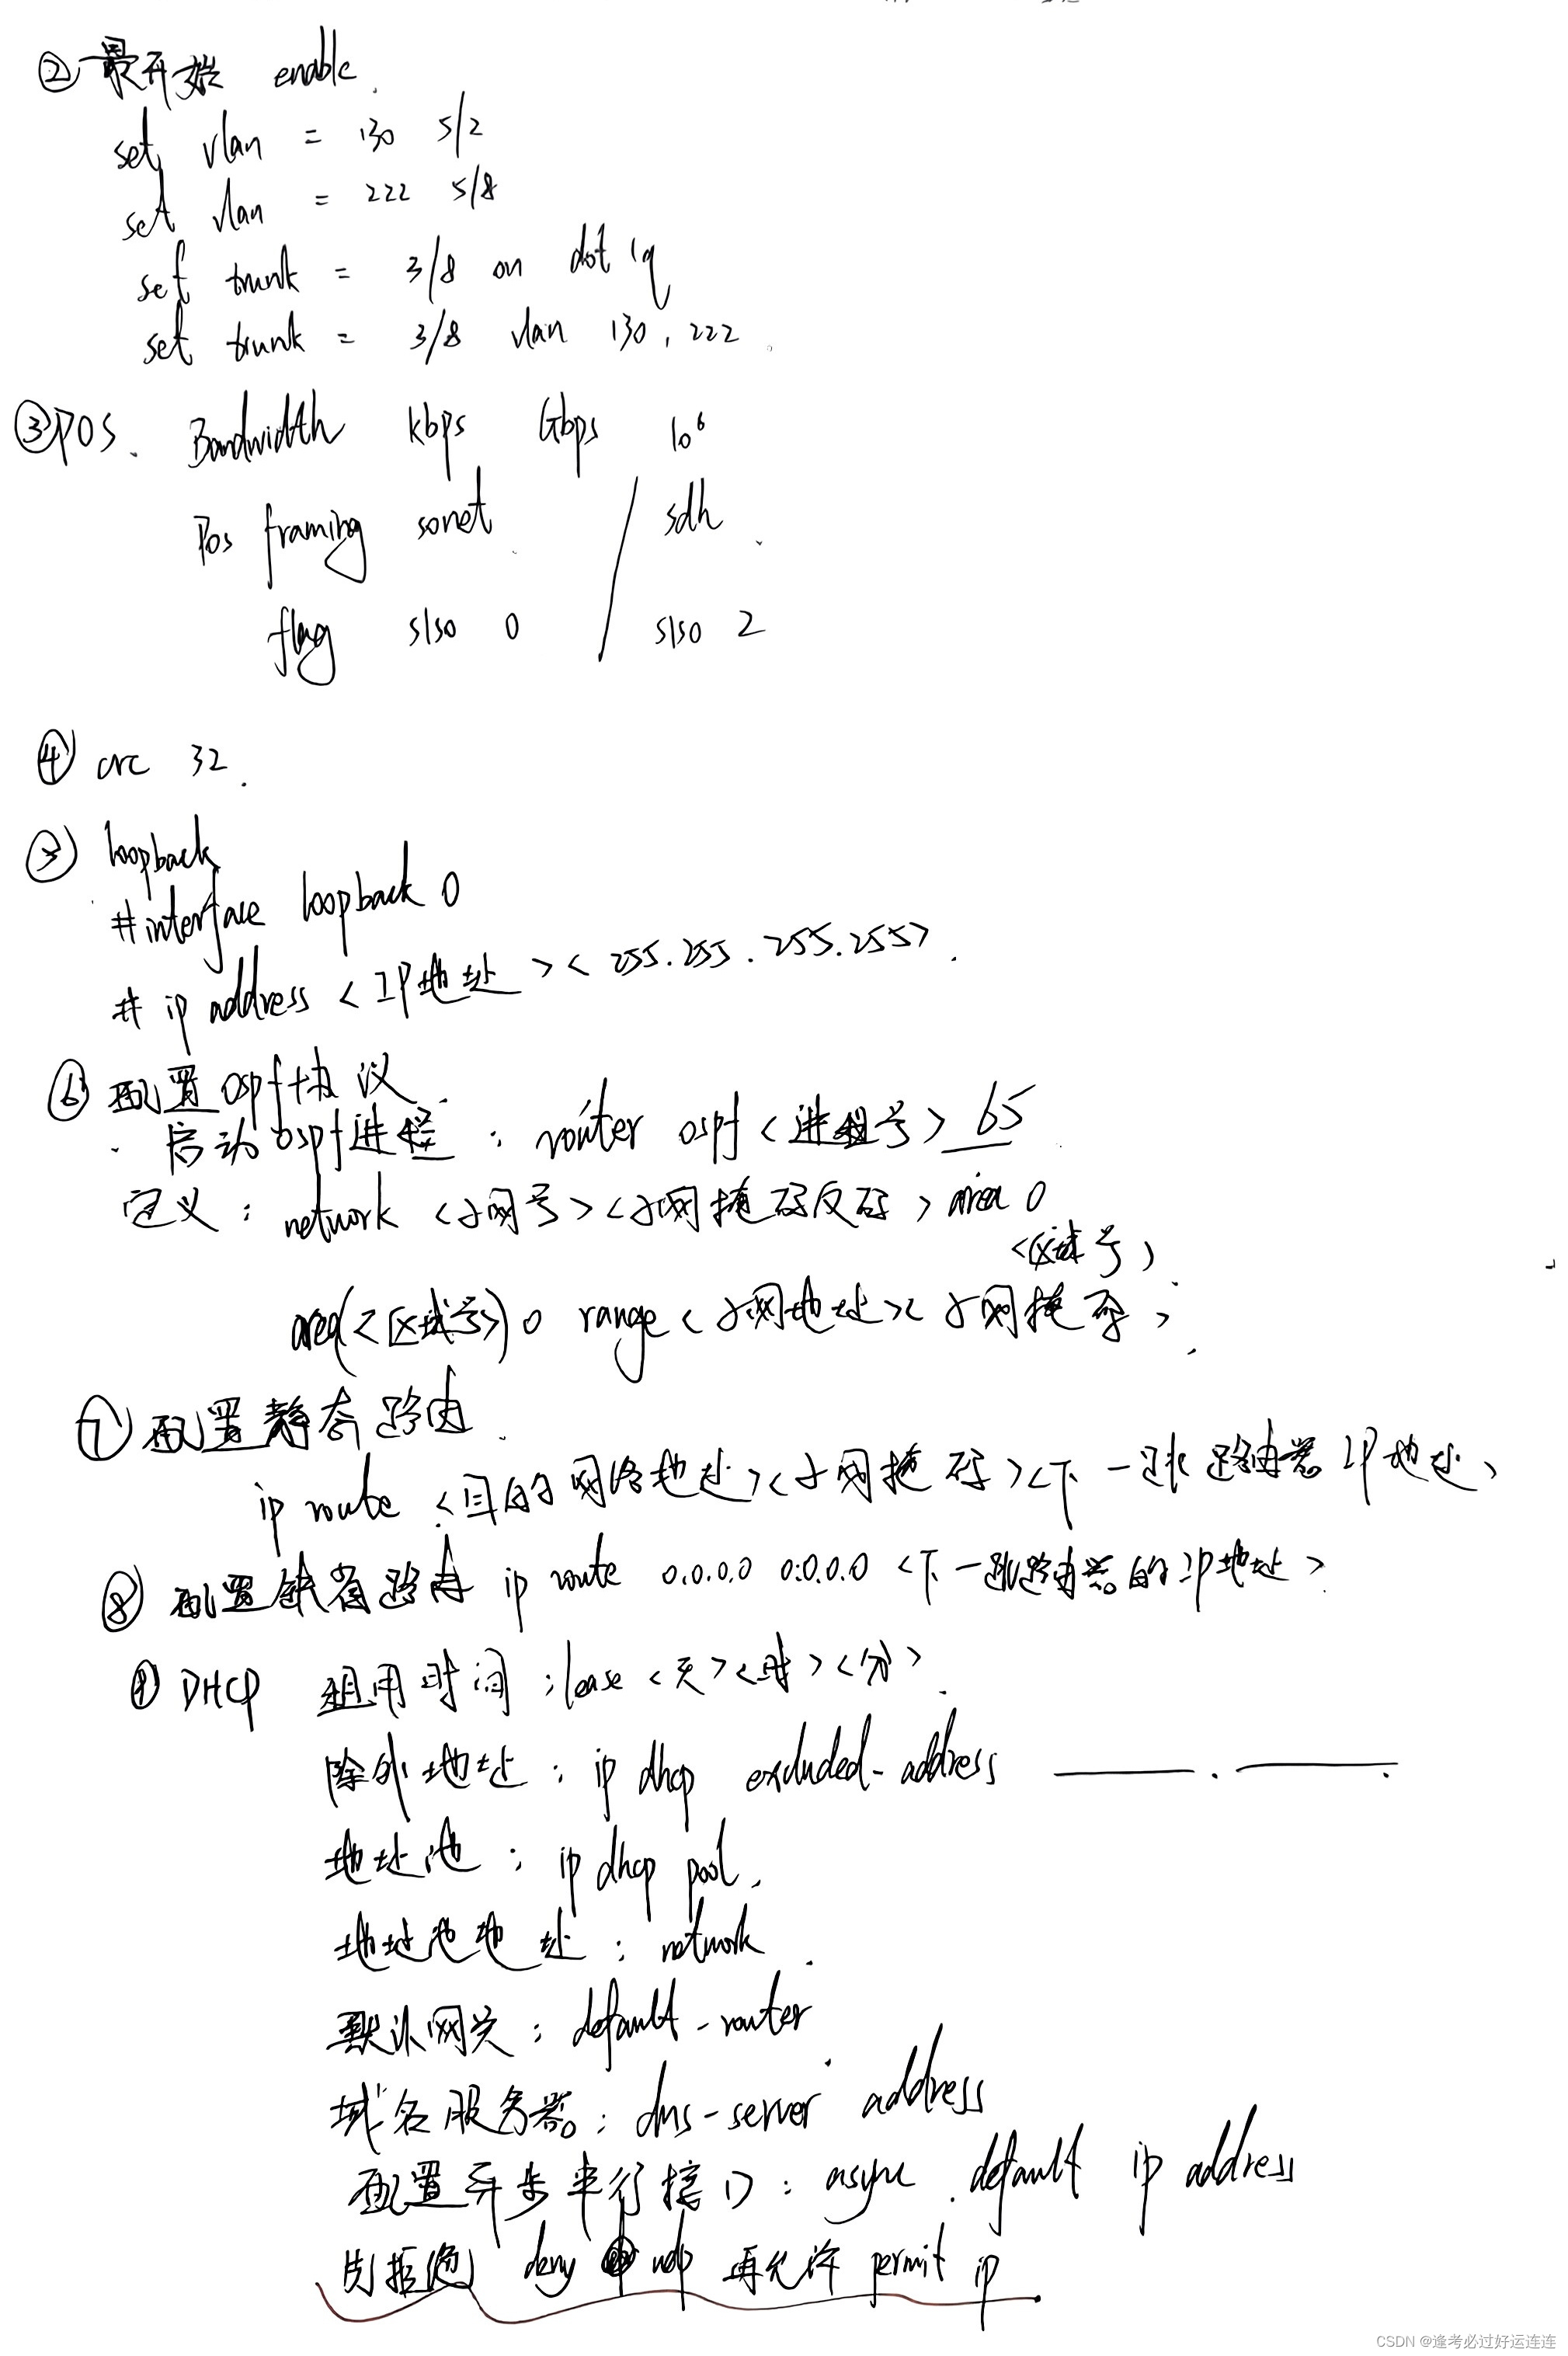 ② 最开始 enable.
set vlan = 130 5/2
set vlan = 222 5/8
set trunk = 3/8 on dot 1q
set trunk = 3/8 vlan 130,222.
③ POS. Bandwidth kbps Gbps 10⁶
Pos framing sonet. / sdh.
flag s1s0 0 / s1s0 2
④ crc 32.
⑤ loopback
#interface loopback 0
# ip address <IP地址><255.255.255.255>.
⑥ 配置ospf协议.
启动ospf进程: router ospf <进程号> 65
定义: network <子网号><子网掩码反码> area 0
<区域号>.
area(<区域号>) 0 range <子网地址><子网掩码>.
⑦ 配置静态路由.
ip route <目的网络地址><子网掩码><下一跳路由器IP地址>
⑧ 配置缺省路由 ip route 0.0.0.0 0.0.0.0 <下一跳路由器的IP地址>
⑨ DHCP 租用时间: lease <天><时><分>.
除外地址: ip dhcp excluded-address
地址池: ip dhcp pool.
地址池地址: network.
默认网关: default-router.
域名服务器: dns-server address
配置异步串行接口: async default ip address
先拒绝 deny udp 再允许 permit ip
CSDN @逢考必过好运连连